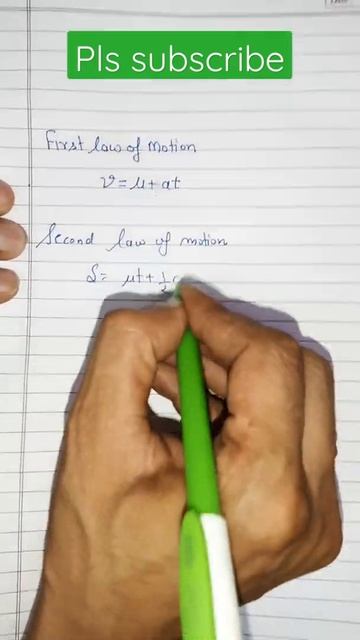 Pls subscribe
First law of motion
v = u + at
Second law of motion
S = ut + 1/2